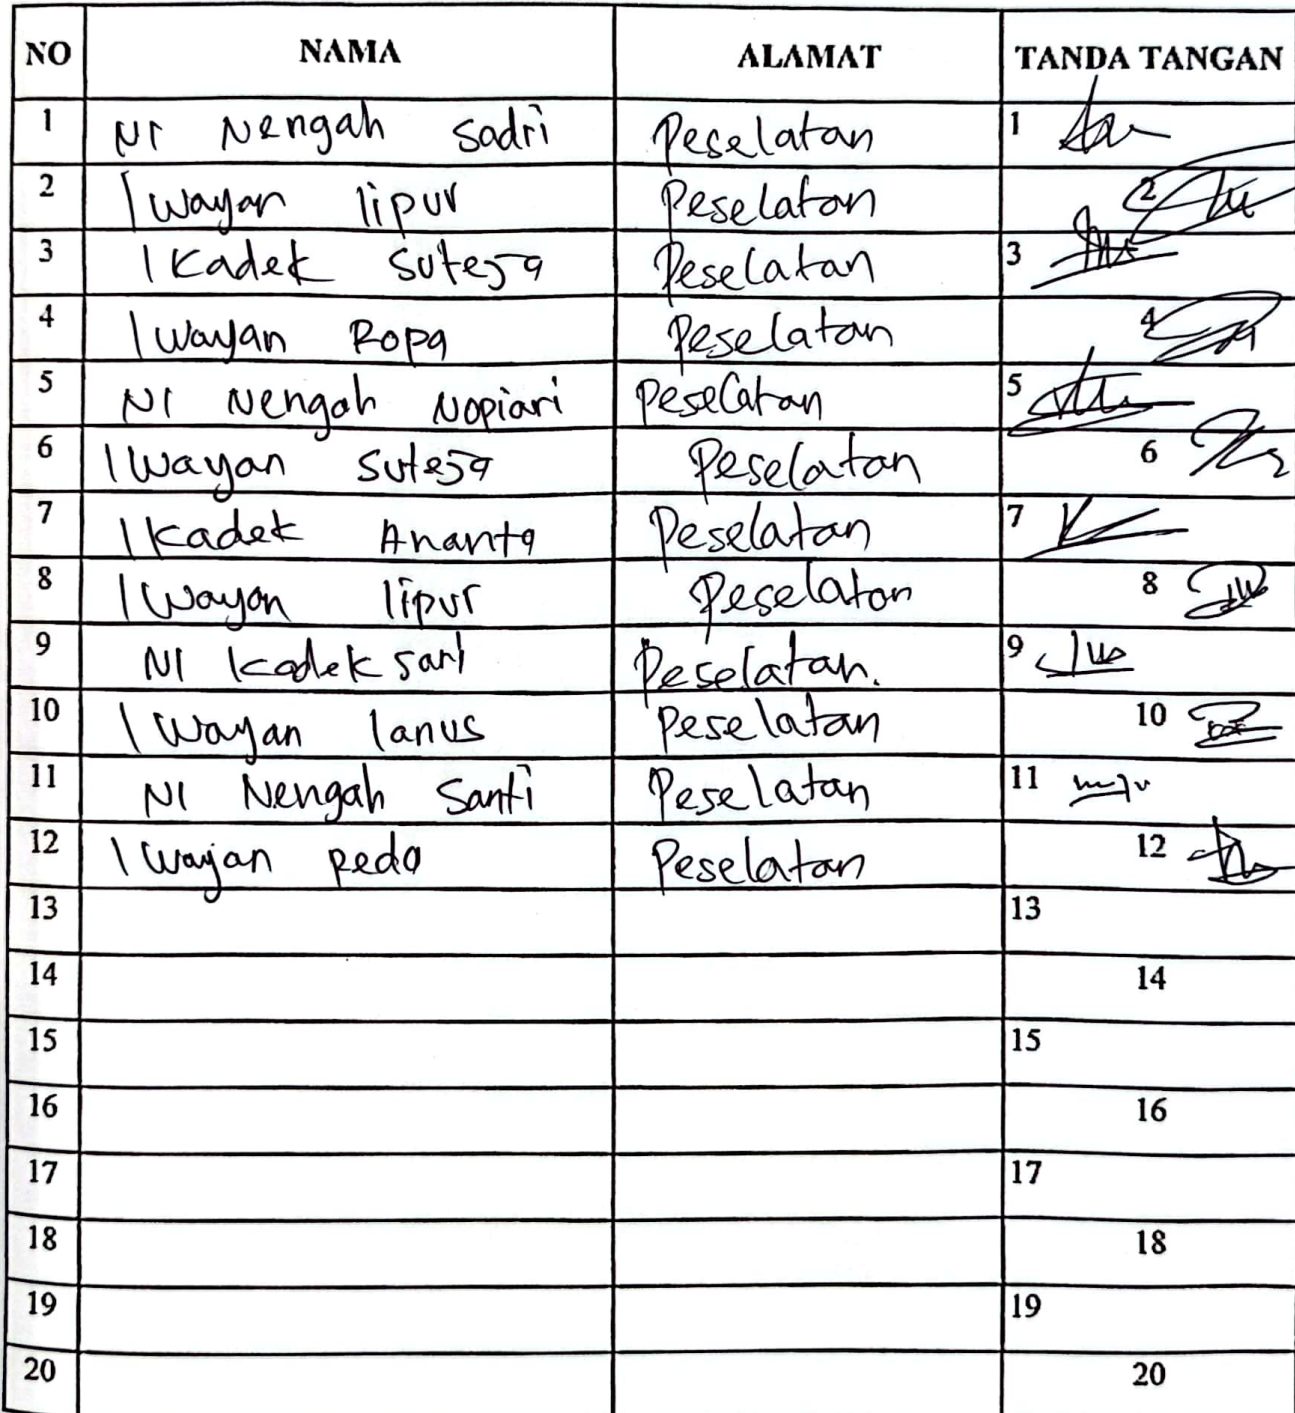 NO NAMA ALAMAT TANDA TANGAN
1 NI Nengah Sadri Peselatan 1
2 I Wayan lipur Peselatan 2
3 I Kadek Suteja Peselatan 3
4 I Wayan Ropa Peselatan 4
5 NI Nengah Nopiari Peselatan 5
6 I Wayan Suteja Peselatan 6
7 I Kadek Ananta Peselatan 7
8 I Wayan lipur Peselatan 8
9 NI Kadek Sari Peselatan. 9
10 I Wayan lanus Peselatan 10
11 NI Nengah Santi Peselatan 11
12 I Wayan Peda Peselatan 12
13 13
14 14
15 15
16 16
17 17
18 18
19 19
20 20